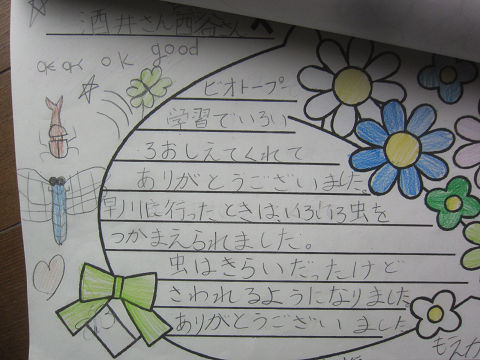 酒井さん 西谷さんへ
ok good
ビオトープ
学習でいろい
ろおしえてくれて
ありがとうございました。
早川に行ったときは、いろいろ虫を
つかまえられました。
虫はきらいだったけど
さわれるようになりました
ありがとうございました